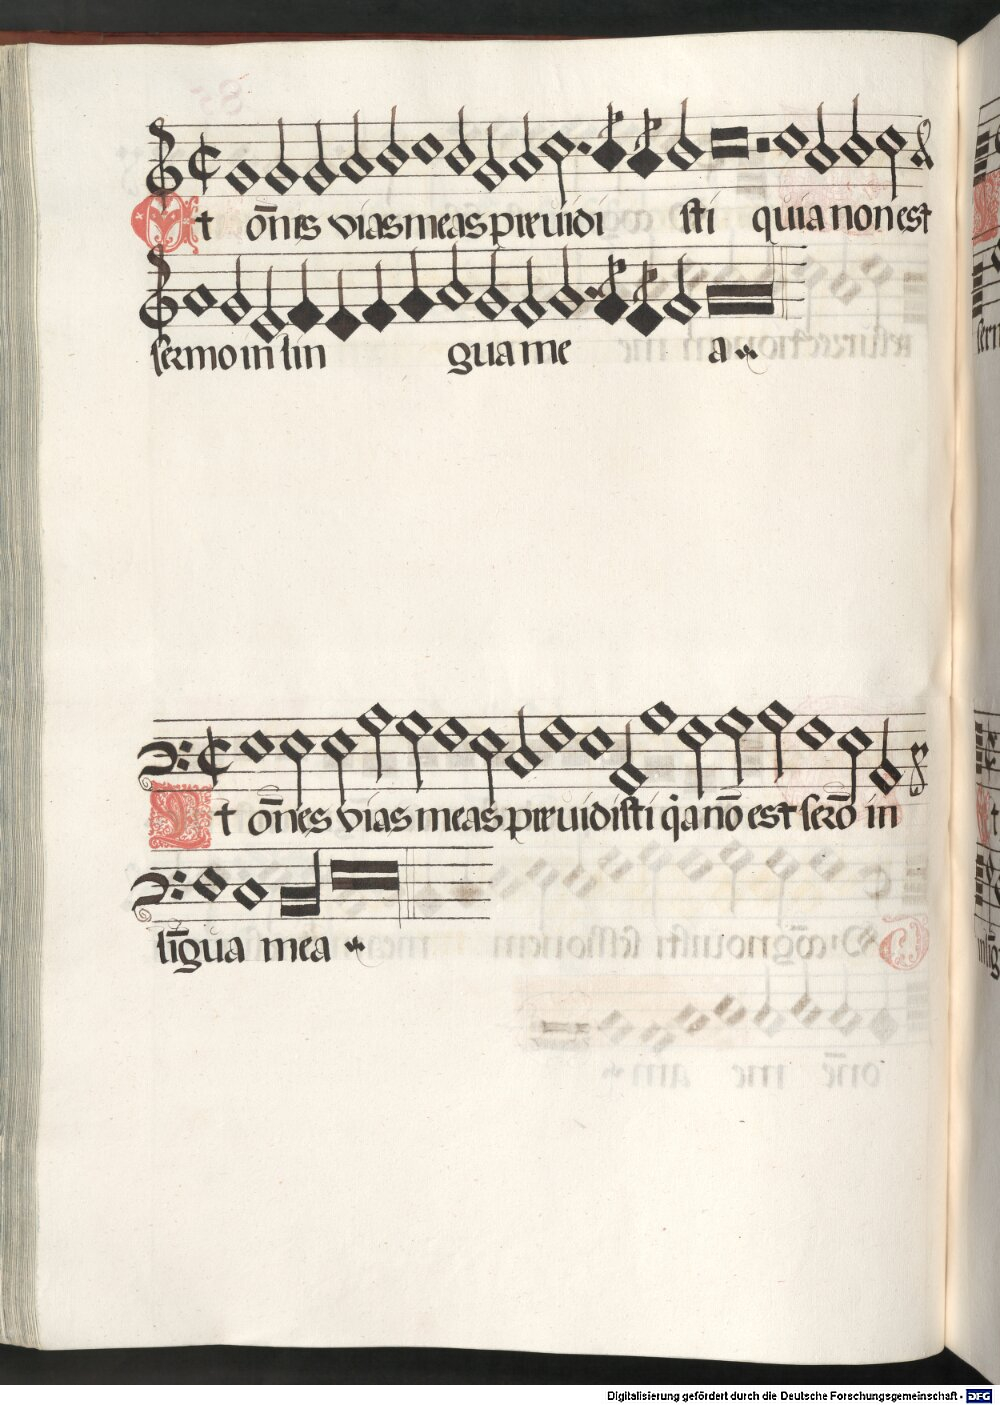 Et o̅nes vias meas previdi sti quia non est
sermo in lin gua me a
Et o̅nes vias meas previdisti q̇a no̅ est sero̅ in
li̅gua mea
Digitalisierung gefördert durch die Deutsche Forschungsgemeinschaft - DFG